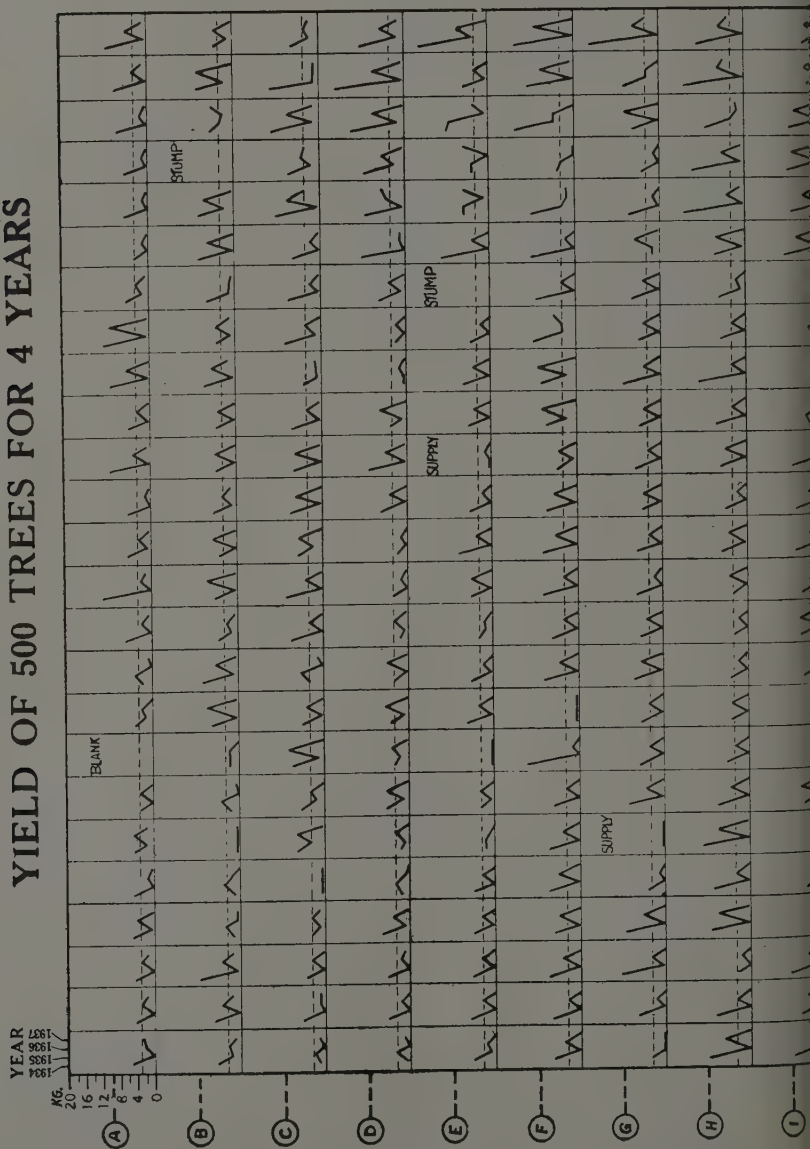 YIELD OF 500 TREES FOR 4 YEARS
YEAR
1937
1936
1935
1934
KG.
20
16
12
8
4
0
A
B
C
D
E
F
G
H
I
BLANK
STUMP
SUPPLY
STUMP
SUPPLY